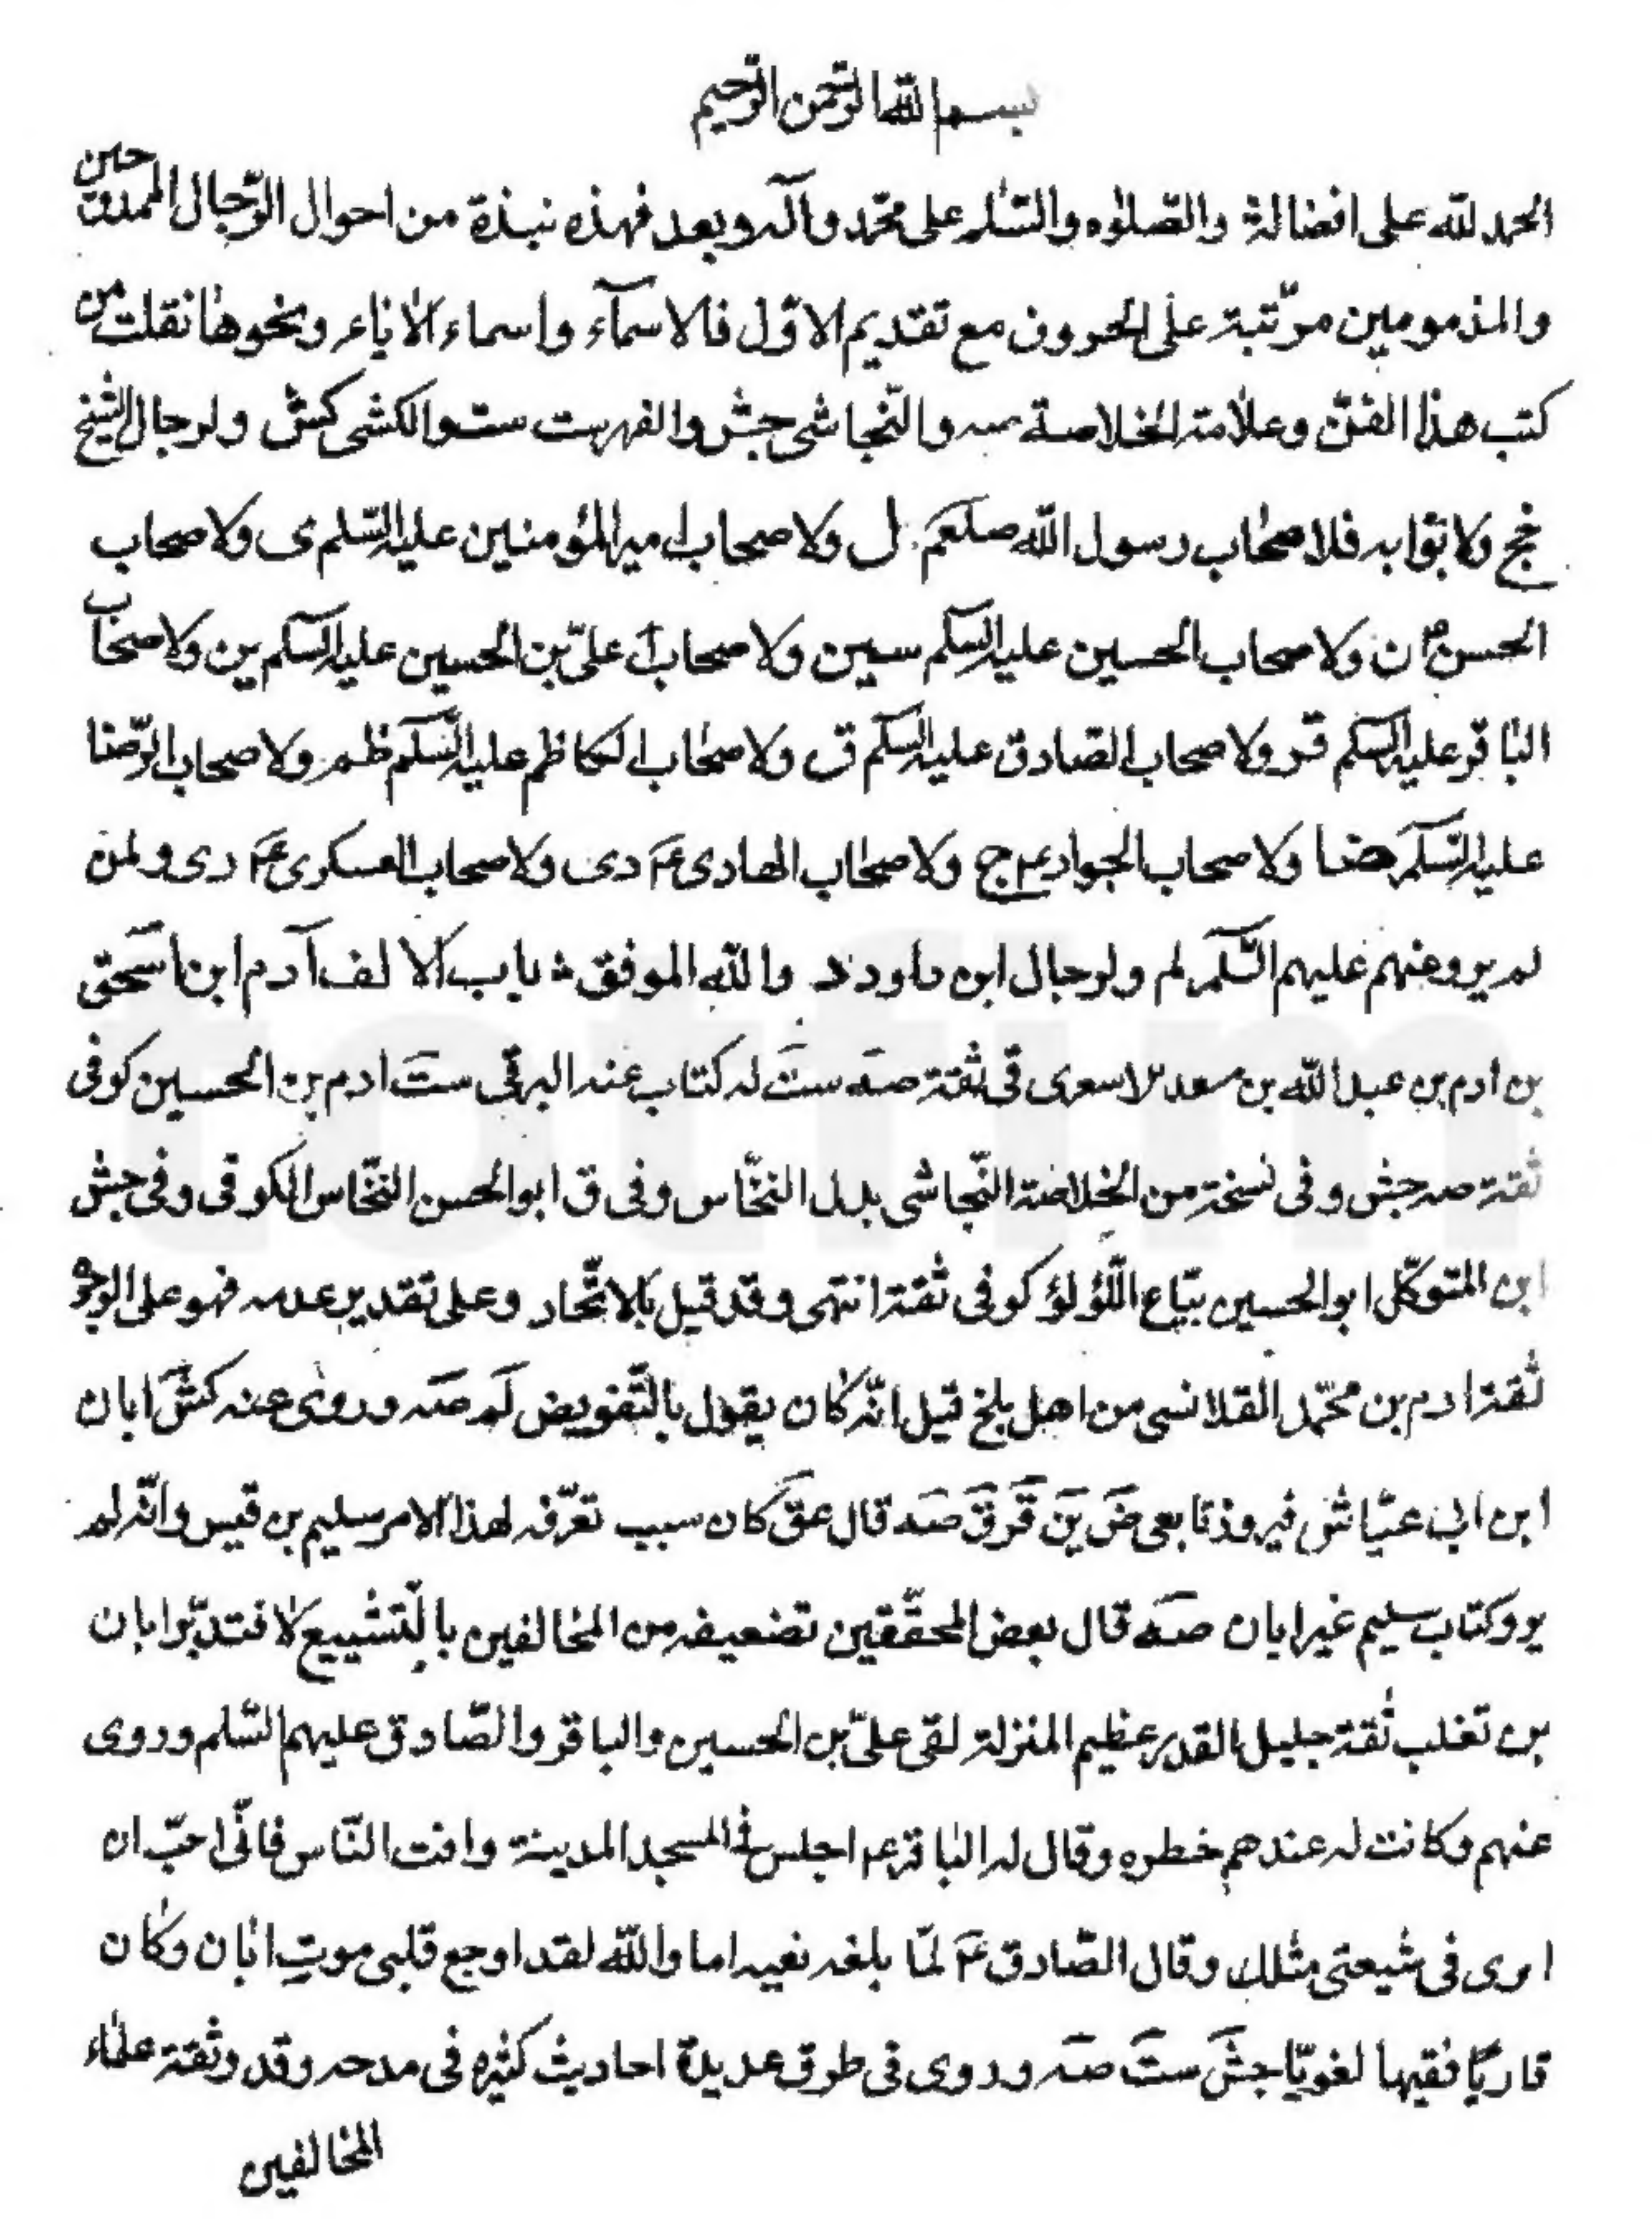 بسم الله الرحمن الرحيم
الحمد لله على افضاله والصلوٰة والسّلم على محمّد وآله وبعد فهذه نبذة من احوال الرّجال الممدوحين
والمذمومين مرتّبة على الحروف مع تقديم الاوّل فالاسمآء واسماء الاباء ونحوها نقلت من
كتب هذا الفنّ وعلامة الخلاصة صه والنّجاشى جش والفهرست ست والكشى كش ولرجال الشيخ
خج ولابوابه فلاصحاب رسول الله صلعم ل ولاصحاب امير المؤمنين عليه السّلم ى ولاصحاب
الحسن ع ن ولاصحاب الحسين عليه السلم سين ولاصحاب علىّ بن الحسين عليه السلم ين ولاصحاب
الباقر عليه السلم قر ولاصحاب الصادق عليه السلم ق ولاصحاب الكاظم عليه السّلم ظم ولاصحاب الرّضا
عليه السّلم ضا ولاصحاب الجواد ع ج ولاصحاب الهادى ع دى ولاصحاب العسكرى ع رى ولمن
لم يرو عنهم عليهم السّلم لم ولرجال ابن داود د والله الموفق باب الالف آدم ابن اسحق
بن ادم بن عبد الله بن سعد الاسعرى قى ثقة صه ست له كتاب عنه البرقى ست ادم بن الحسين كوفى
ثقة صه جش وفى نسخة من الخلاصة النّجاشى بدل النخّاس وفى ق ابو الحسن النخّاس الكوفى وفى جش
ابن المتوكّل ابو الحسين بيّاع اللّؤلؤ كوفى ثقة انتهى وقد قيل بالاتّحاد وعلى تقدير عدمه فهو على الوجوه
ثقة ادم بن محمّد القلانسى من اهل بلخ قيل انّه كان يقول بالتّفويض لم صه وروى عنه كش ابان
ابن ابى عيّاش فيروز تابعى ض ين قر ق صه قال عق كان سبب تعرّفه لهذا الامر سليم بن قيس وانّه لم
يرو كتاب سليم غير ابان صه قال بعض المحقّقين تضعيفه من المخالفين بالتّشييع لا فتدبّر ابان
بن تغلب ثقة جليل القدر عظيم المنزلة لقى علىّ بن الحسين والباقر والصّادق عليهم السّلم وروى
عنهم وكانت له عندهم خطره وقال له الباقر ع اجلس فى المسجد المدينة وافت النّاس فانّى احبّ ان
ارى فى شيعتى مثلك وقال الصّادق ع لمّا بلغه نعيه اما والله لقد اوجع قلبى موت ابان وكان
قاريّا فقيها لغويّا جش ست صه وروى فى طرق عديدة احاديث كثيره فى مدحه وقد وثقة علماء
المخالفين